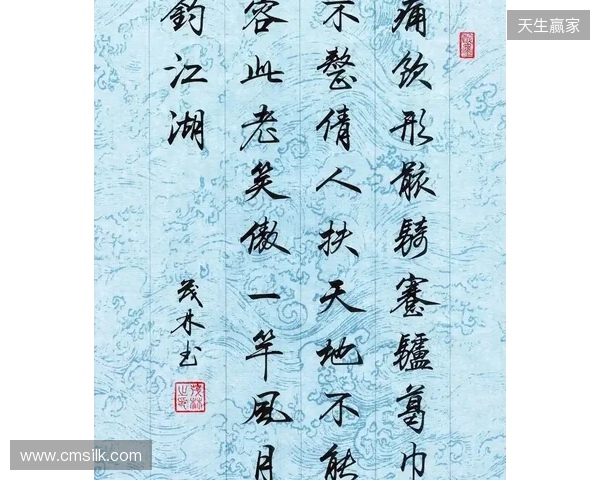 痛飲形骸騎蹇驢葛巾
不整倩人扶天地不能
容此老笑傲一竿風月
釣江湖
茂林书
天生赢家
www.cmsilk.com